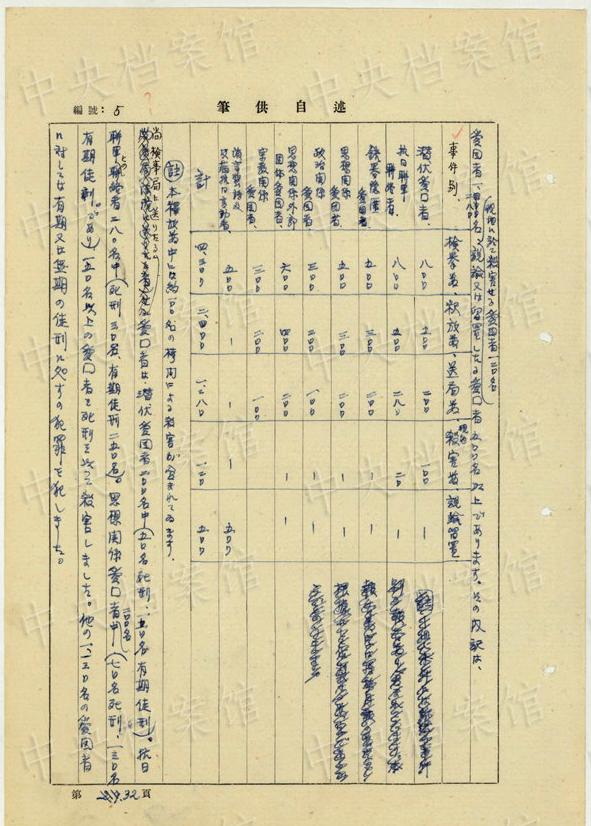 筆供自述
編號：5
愛国者、一、二八〇名、説諭又は留置したる愛国者五〇〇名以上であります。その内訳は、
現地に於て殺害せる愛国者一二〇名
事件別、 検挙者、 釈放者、 送局者、 現地殺害者、 説諭留置
潜伏愛国者、 八〇〇 五〇〇 二〇〇 一〇〇 ｜
抗日聯軍聯絡者、 八〇〇 五〇〇 二八〇 二〇 ｜
愛国者、 五〇〇 三〇〇 二〇〇 ｜ ｜
思想関係愛国者、 五〇〇 三〇〇 二〇〇 ｜ ｜
政治関係愛国者 三〇〇 二〇〇 一〇〇 ｜ ｜
思想関係外郭団体愛国者、 六〇〇 四〇〇 二〇〇 ｜ ｜
宗教関係愛国者、 三〇〇 二〇〇 一〇〇 ｜
反満抗日言動者、 五〇〇 ｜ ｜ ｜ 五〇〇
計 四、三〇〇 二、四〇〇 一、二八〇 一二〇 五〇〇
註 本釈放者中には約一〇〇名の拷問による殺害が含まれてゐます。
尚検事局に送りたる愛国者は、潜伏愛国者二〇〇名中(五〇名死刑、一五〇名有期徒刑)。抗日
聯軍との聯絡者二八〇名中(死刑三〇名、有期徒刑二五〇名)。思想関係愛国者二〇〇名中(七〇名死刑、一三〇名
有期徒刑)であり、一五〇名以上の愛国者を死刑を以つて殺害しました。他の一、一三〇名の愛国者
に対しては有期又は無期の徒刑に処すの犯罪を犯しました。
第 32 頁
中央档案馆